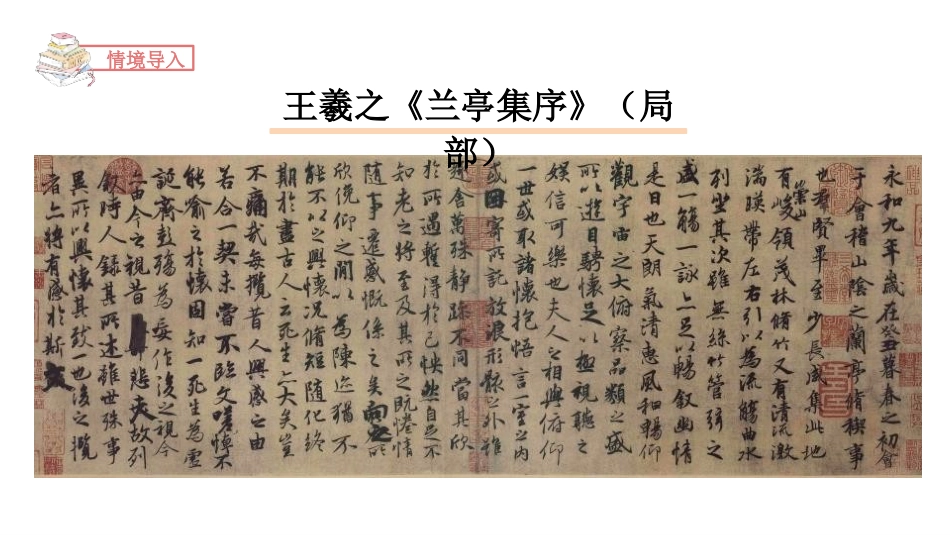 情境导入
王羲之《兰亭集序》（局
部）
永和九年歲在癸丑暮春之初會
于會稽山陰之蘭亭脩稧事
也羣賢畢至少長咸集此地
有崇山峻領茂林脩竹又有清流激
湍暎帶左右引以為流觴曲水
列坐其次雖無絲竹管弦之
盛一觴一詠亦足以暢叙幽情
是日也天朗氣清惠風和暢仰
觀宇宙之大俯察品類之盛
所以遊目騁懷足以極視聽之
娛信可樂也夫人之相與俯仰
一世或取諸懷抱悟言一室之內
或因寄所託放浪形骸之外雖
趣舍萬殊静躁不同當其欣
於所遇暫得於己怏然自足不
知老之將至及其所之既惓情
隨事遷感慨係之矣向之所
欣俛仰之閒以為陳迹猶不
能不以之興懷況脩短隨化終
期於盡古人云死生亦大矣豈
不痛哉每攬昔人興感之由
若合一契未嘗不臨文嗟悼不
能喻之於懷固知一死生為虛
誕齊彭殤為妄作後之視今
亦由今之視昔悲夫故列
叙時人錄其所述雖世殊事
異所以興懷其致一也後之攬
者亦將有感於斯文